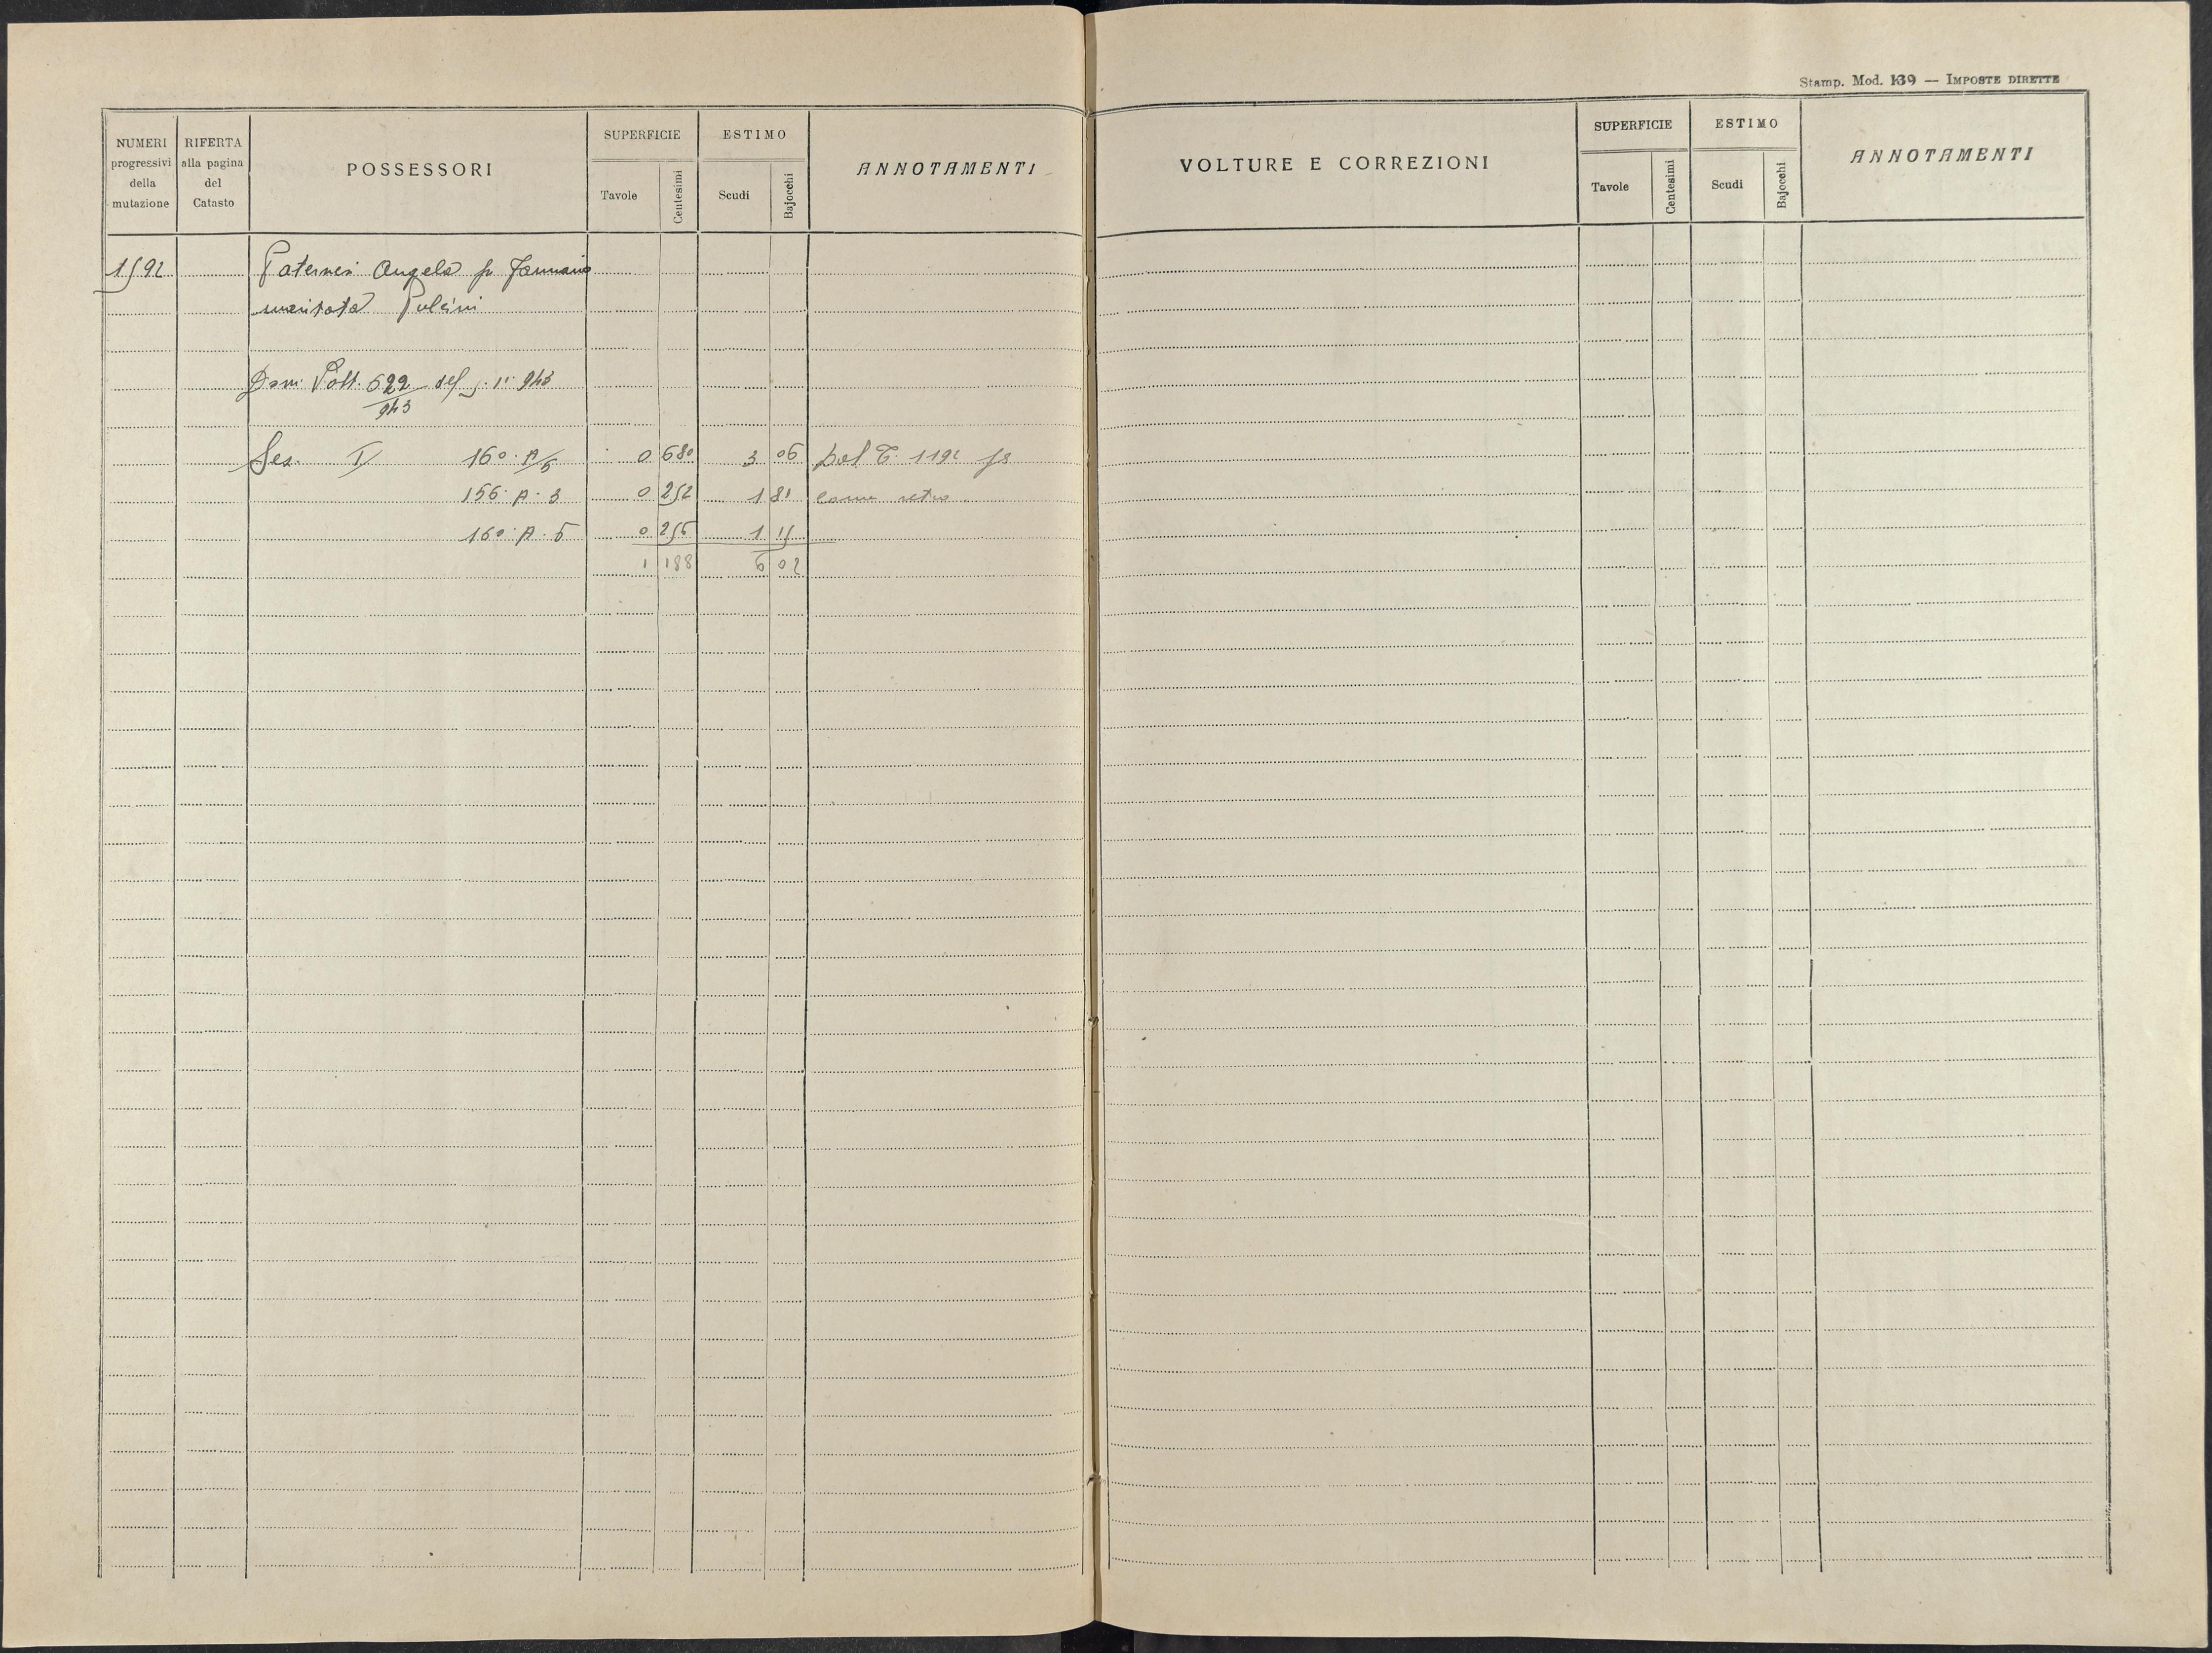 Stamp. Mod. 139 — IMPOSTE DIRETTE
NUMERI progressivi della mutazione
RIFERTA alla pagina del Catasto
POSSESSORI
SUPERFICIE
Tavole
Centesimi
ESTIMO
Scudi
Bajocchi
ANNOTAMENTI
VOLTURE E CORREZIONI
SUPERFICIE
Tavole
Centesimi
ESTIMO
Scudi
Bajocchi
ANNOTAMENTI
1592 Paternesi Angela fu
maritata Pulcini
622 943
943
Sez. I 160. A/5 0 680 3 06 Dal 1192
156. A. 3 0 252 1 81 come retro
160. A. 5 0 256 1 15
1 188 6 02